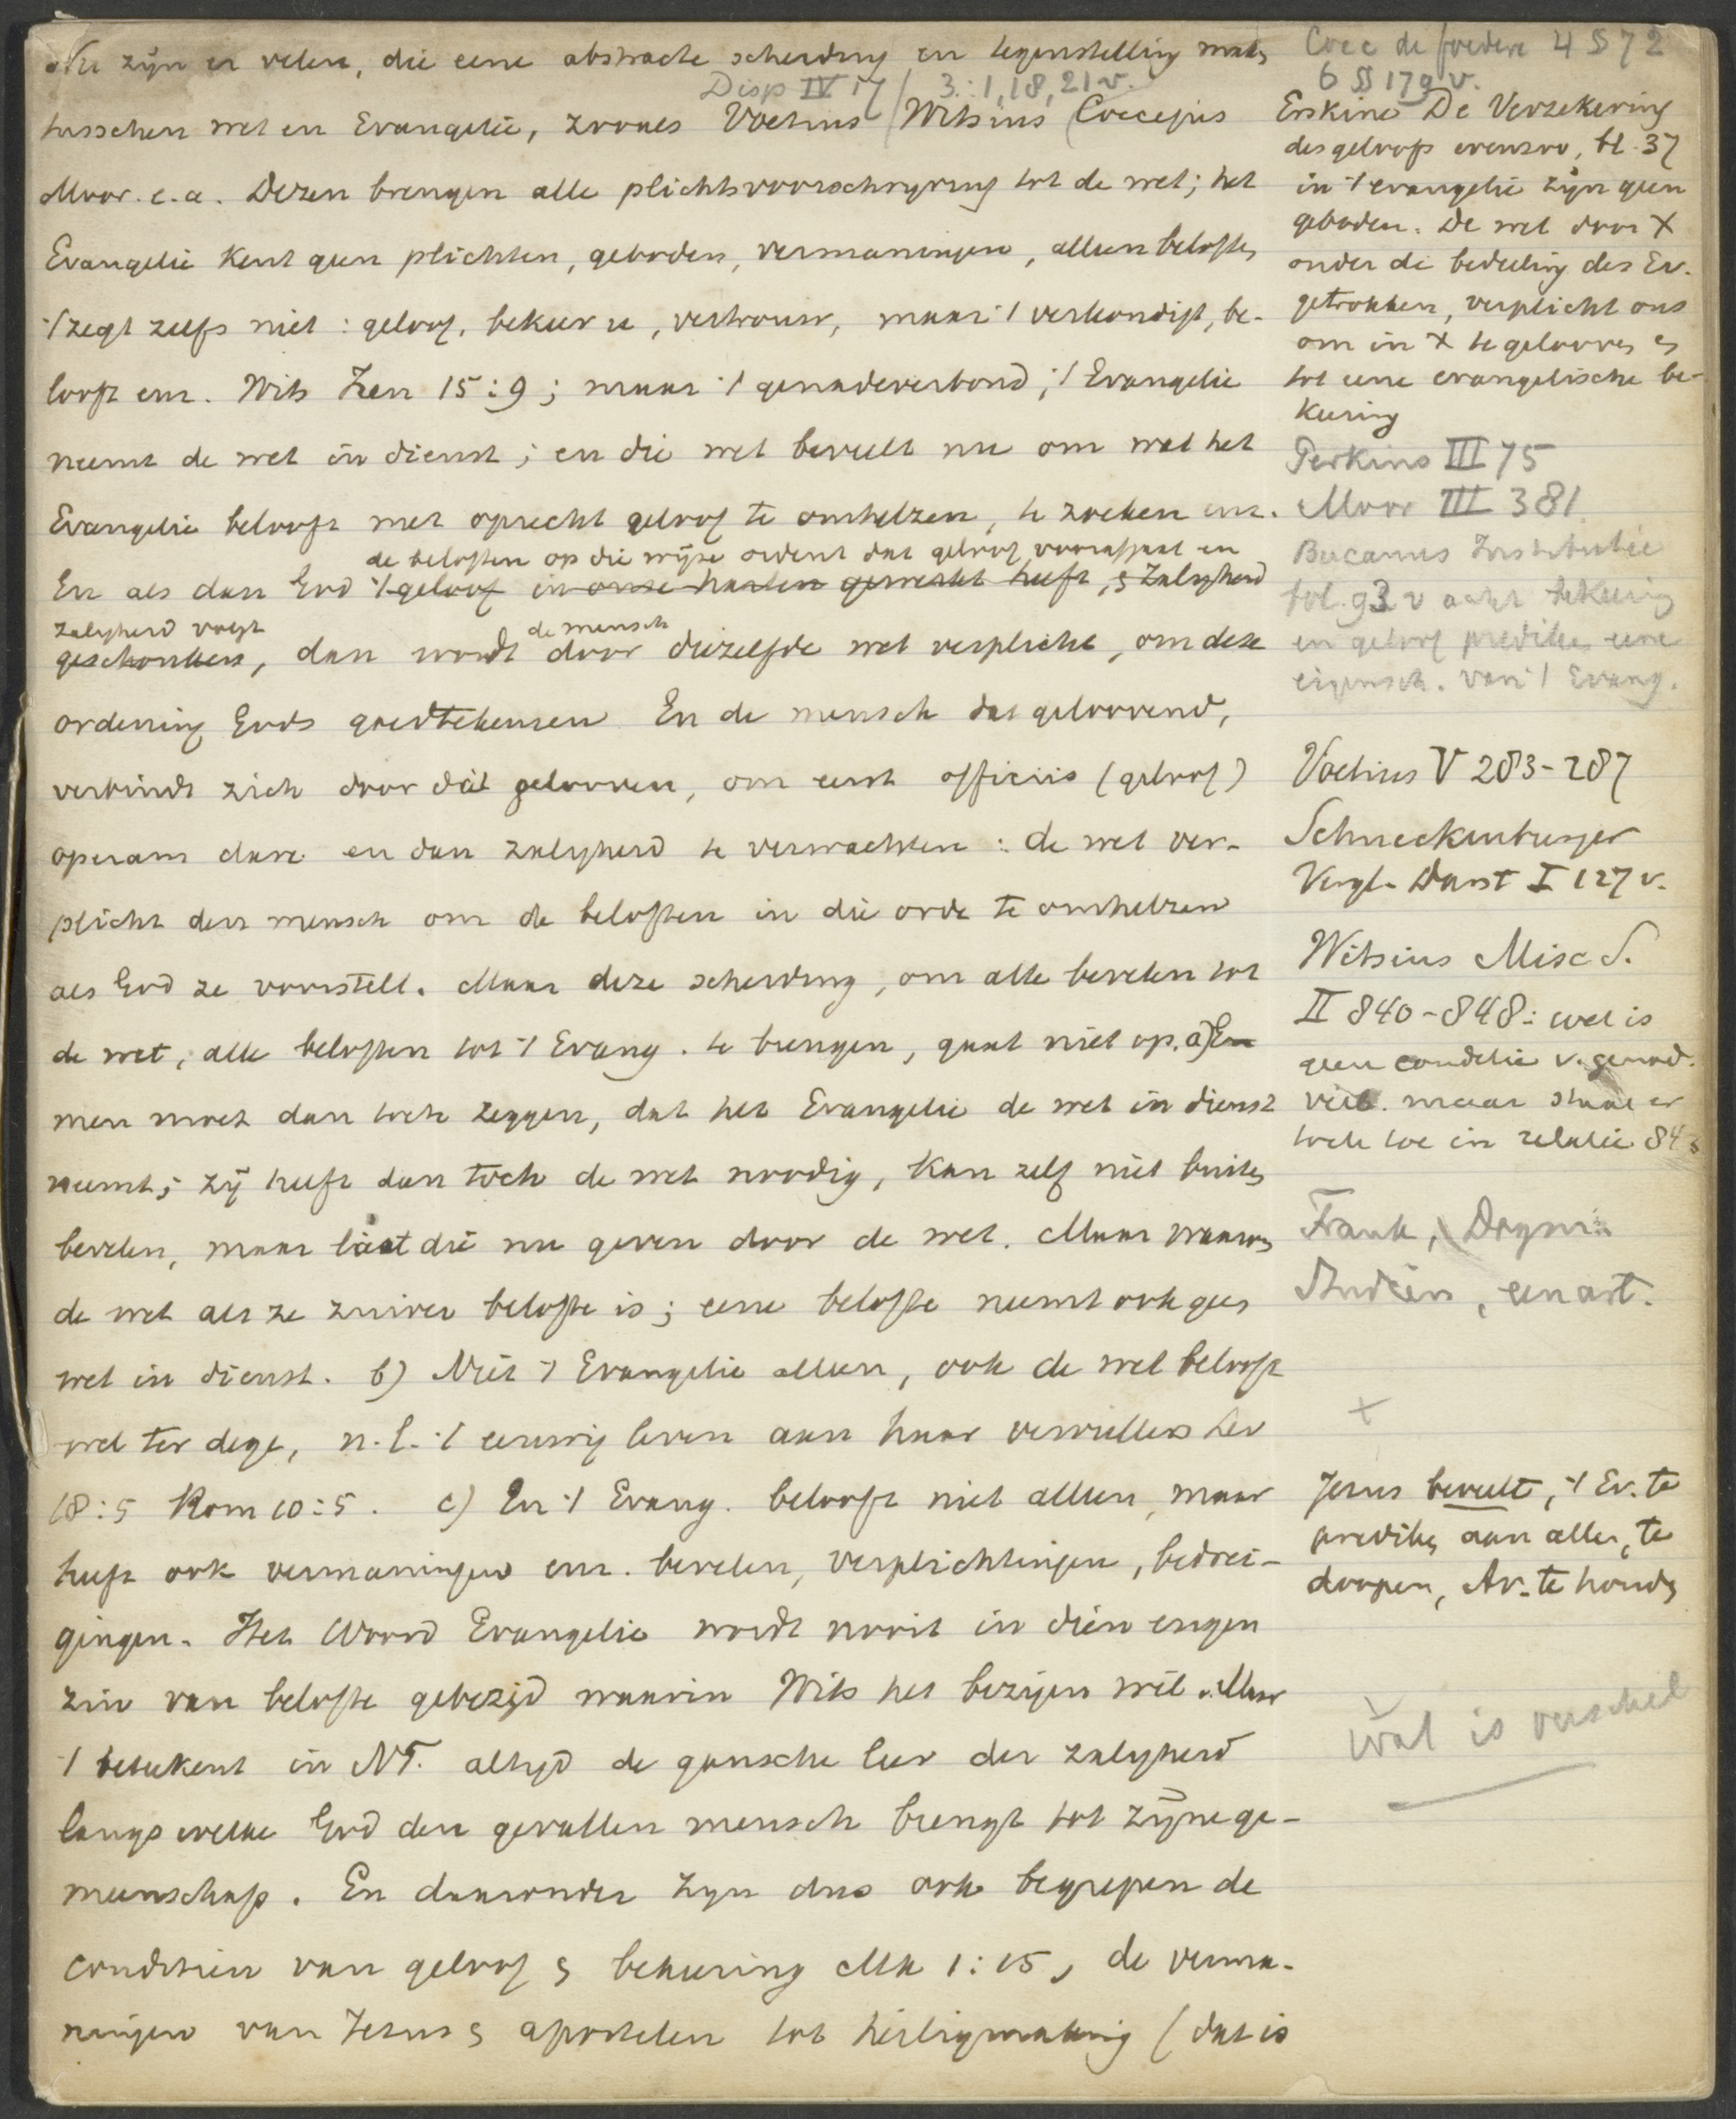 Nu zijn er velen, die eene abstracte scheiding en tegenstelling maken
Disp IV 17 / 3:1, 18, 21 v.
tusschen wet en Evangelie, zooals Voetius / Witsius / Coccejus
Moor. e.a. Dezen brengen alle plichtsvoorschrijving tot de wet; het
Evangelie kent geen plichten, geboden, vermaningen, alleen beloften
't zegt zelfs niet: geloof, bekeer u, vertrouw, maar 't verkondigt, be-
looft enz. Wits Iren 15:9; maar 't genadeverbond, 't Evangelie
neemt de wet in dienst; en die wet beveelt nu om wat het
Evangelie belooft met oprecht geloof te omhelzen, te zoeken enz.
de beloften op die wijze ordent dat geloof voorafgaat en
En als dan God 't geloof in onze harten gewerkt heeft, & zaligheid
zaligheid volgt
de mensch
geschonken, dan wordt door diezelfde wet verplicht, om deze
ordening Gods goedtekeuren En de mensch dat geloovend,
verbindt zich door dat gelooven, om eerst officiis (geloof)
operam dare en dan zaligheid te verwachten: de wet ver-
plicht den mensch om de beloften in die orde te omhelzen
als God ze voorstelt. Maar deze scheiding, om alle bevelen tot
de wet, alle beloften tot 't Evang. te brengen, gaat niet op. a) En
men moet dan toch zeggen, dat het Evangelie de wet in dienst
neemt; zij heeft dan toch de wet noodig, kan zelf niet buiten
bevelen, maar laat die nu geven door de wet. Maar waarom
de wet als ze zuiver belofte is; eene belofte neemt ook geen
wet in dienst. b) Niet 't Evangelie alleen, ook de wet belooft
wel ter dege, n.l. 't eeuwig leven aan haar vervullers Lev
18:5 Rom 10:5. c) En 't Evang. belooft niet alleen, maar
heeft ook vermaningen enz. bevelen, verplichtingen, bedrei-
gingen. Het Woord Evangelie wordt nooit in dien engen
zin van belofte gebezigd waarin Wits het bezigen wil. Maar
't beteekent in NT. altijd de gansche leer der zaligheid
langs welke God den gevallen mensch brengt tot zijne ge-
meenschap. En daaronder zijn dus ook begrepen de
conditiën van geloof & bekeering Mk 1:15, de verma-
ningen van Jezus & apostelen tot heiligmaking (dat is
Cocc de foedere 4 § 72
6 §§ 179 v.
Erskine De Verzekering
des geloofs evenzoo, bl. 37
in 't evangelie zijn geen
geboden. De wet door X
onder de bedeeling des Ev.
getrokken, verplicht ons
om in X te gelooven en
tot eene evangelische be-
keering
Perkins III 75
Moor III 381
Bucanus Institutie
fol. 93 v acht bekeering
en geloof prediken eene
eigensch. van 't Evang.
Voetius V 283-287
Schneckenburger
Vergl. Darst I 127 v.
Witsius Misc S.
II 840-848: wet is
geen conditie v. genad.
verb. maar staat er
toch toe in relatie 843
Frank, Dogm.
Studien, een art.
+
Jezus beveelt, 't Ev. te
prediken aan allen, te
doopen, Av. te houden
wat is verschil